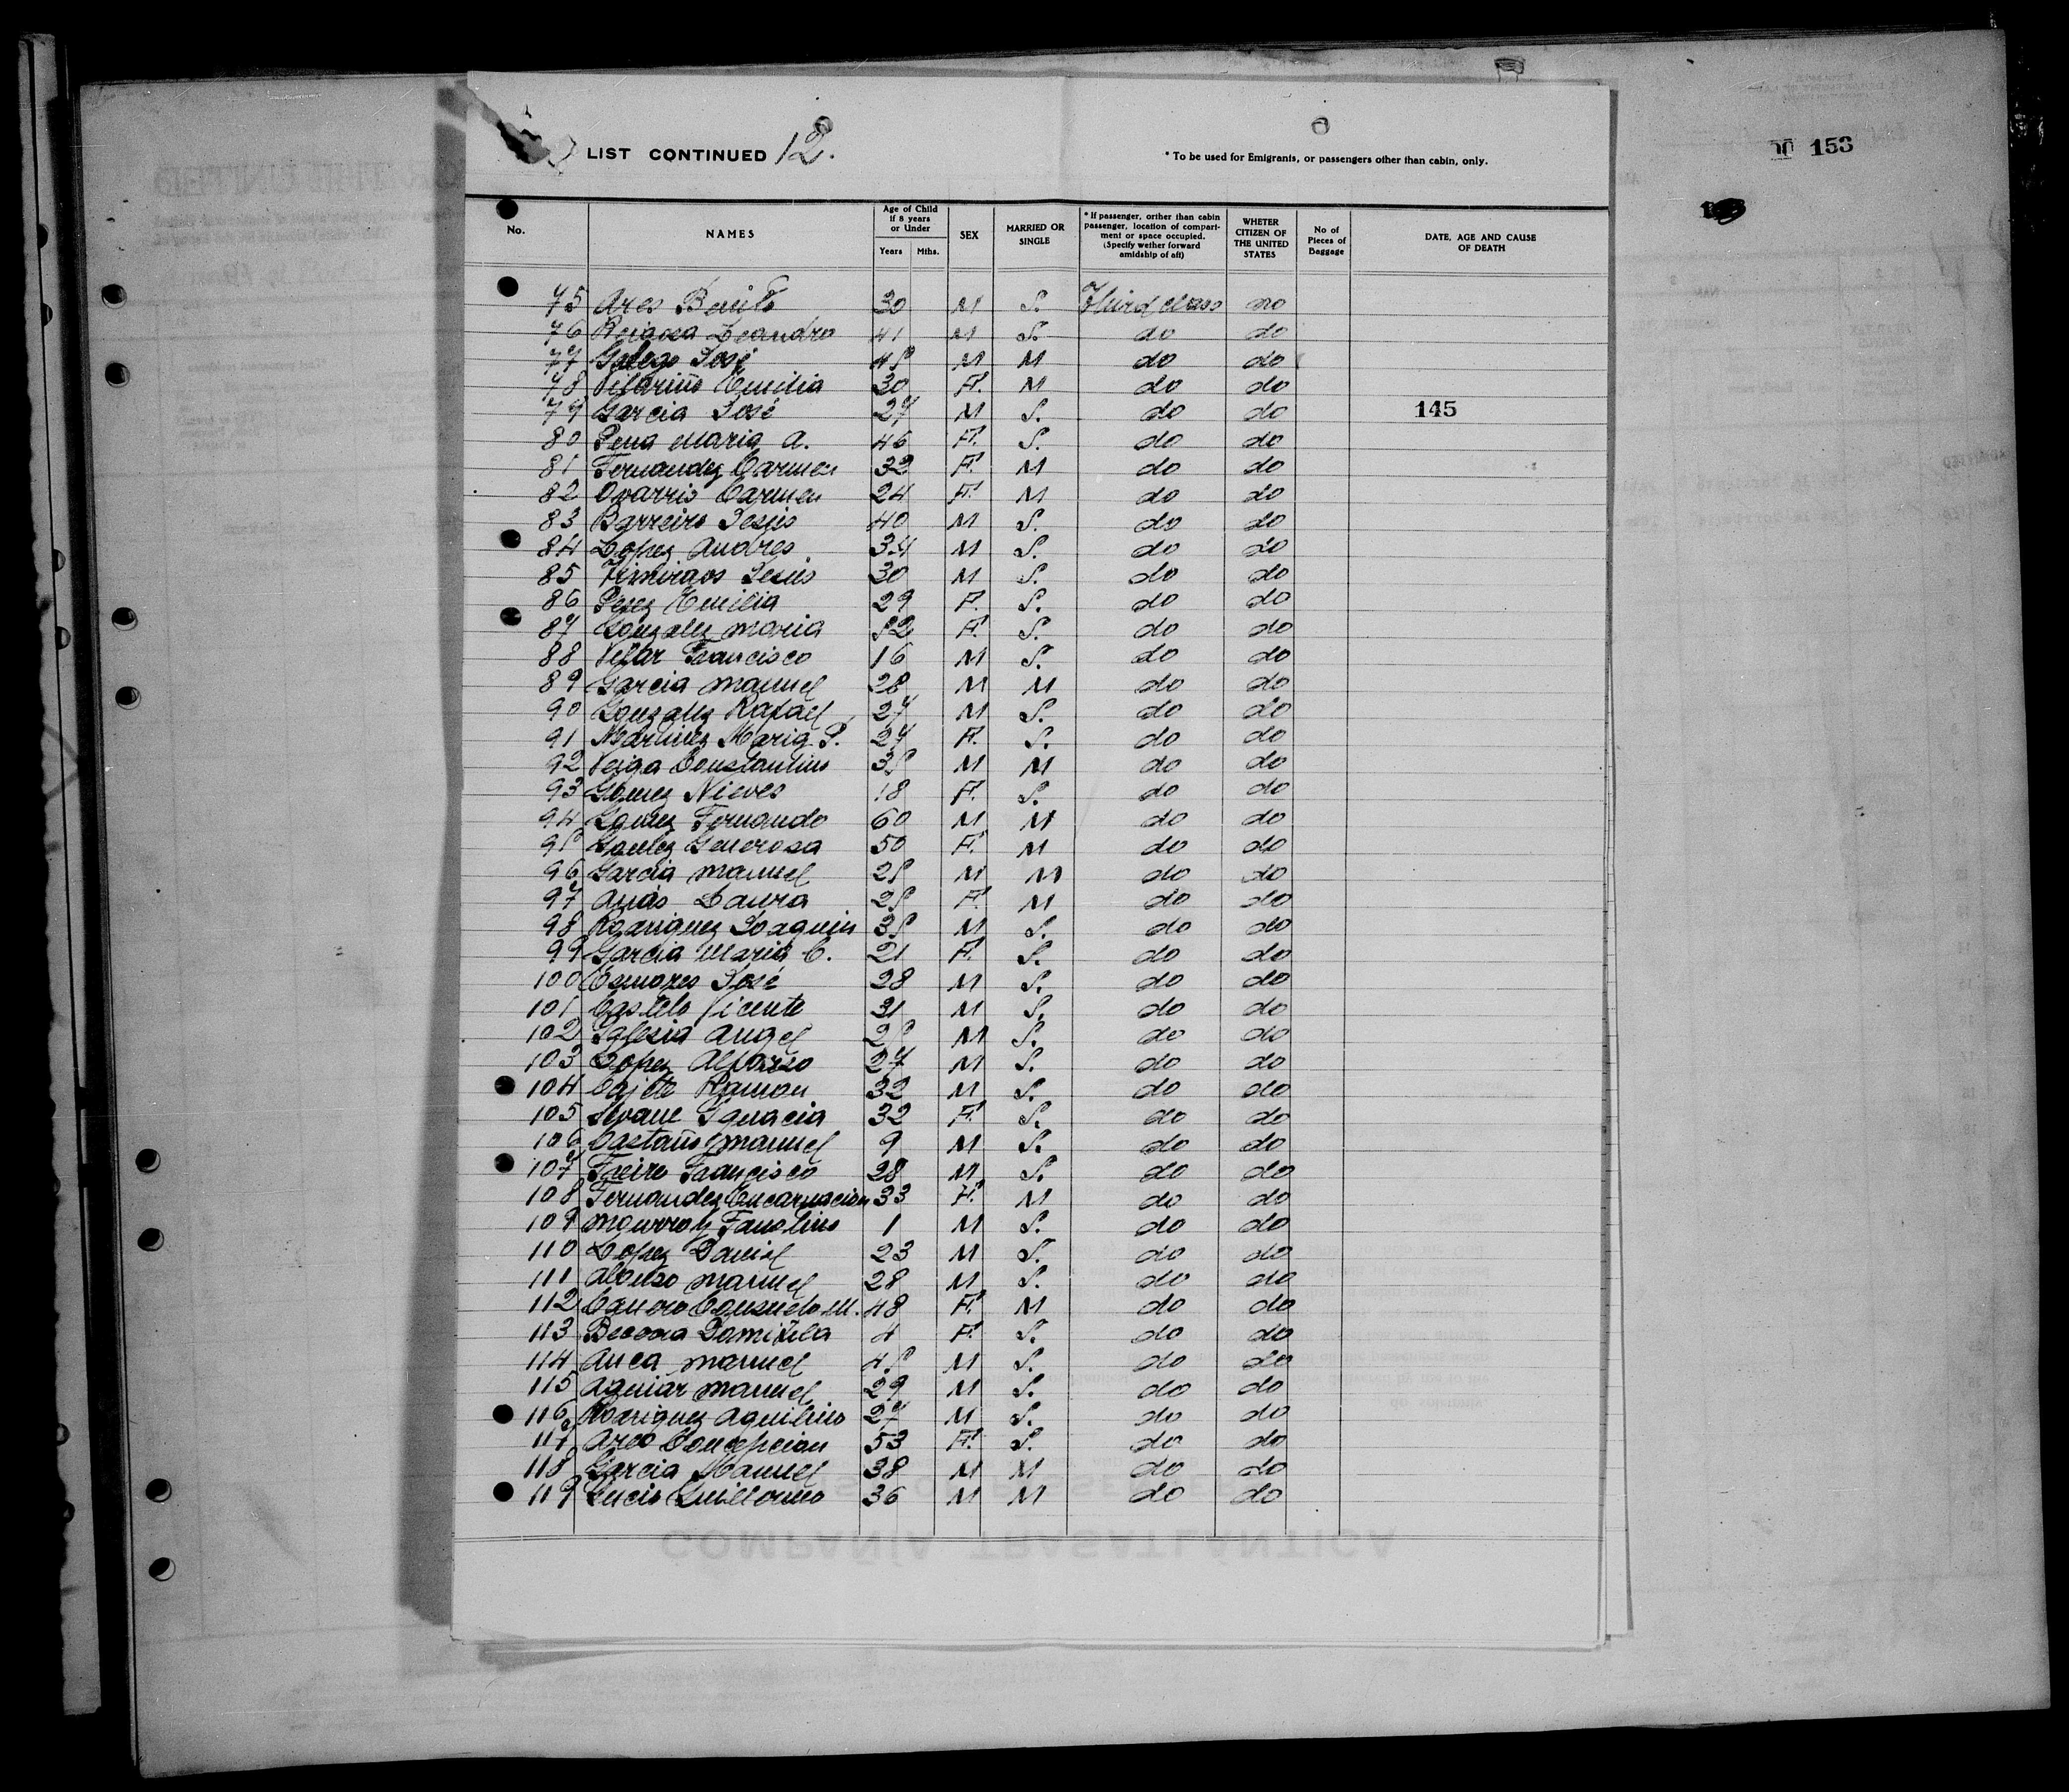 153
LIST CONTINUED 12.
* To be used for Emigrants, or passengers other than cabin, only.
No.
NAMES
Age of Child if 8 years or Under
Years Mths.
SEX
MARRIED OR SINGLE
* If passenger, orther than cabin passenger, location of compartiment or space occupied. (Specify wether forward amidship of aft)
WHETER CITIZEN OF THE UNITED STATES
No of Pieces of Baggage
DATE, AGE AND CAUSE OF DEATH
75 Ares Benito 30 M S. Third class no
76 Leandro 41 M S. do do
77 Galego José 45 M M do do
78 Vilariño Emilia 30 F. M do do
79 Garcia José 27 M S. do do 145
80 Pena Maria A. 46 F. S. do do
81 Fernandez Carmen 32 F. M do do
82 Carmen 24 F. M do do
83 Barreiro Jesús 40 M S. do do
84 Lopez Andres 34 M S. do do
85 Jesús 30 M S. do do
86 Perez Emilia 29 F. S. do do
87 Gonzalez Maria 52 F. S. do do
88 Francisco 16 M S. do do
89 Garcia Manuel 28 M M do do
90 Gonzalez Rafael 27 M S. do do
91 Martinez Maria P. 27 F. S. do do
92 Veiga Constantino 35 M M do do
93 Gomez Nieves 18 F. S. do do
94 Gomez Fernando 60 M M do do
95 Generosa 50 F. M do do
96 Garcia Manuel 25 M M do do
97 Arias Laura 25 F. M do do
98 Rodriguez Joaquin 35 M S. do do
99 Garcia Maria C. 21 F. S. do do
100 José 28 M S. do do
101 Castelo Vicente 31 M S. do do
102 Iglesia Angel 25 M S. do do
103 Lopez Alfonso 27 M S. do do
104 Ramon 32 M S. do do
105 Seoane Ignacia 32 F. S. do do
106 Castaño Manuel 9 M S. do do
107 Freire Francisco 28 M S. do do
108 Fernandez Encarnacion 33 F. M do do
109 Faustino 1 M S. do do
110 Lopez Daniel 23 M S. do do
111 Alonso Manuel 28 M S. do do
112 Consuelo M. 48 F. M do do
113 Becerra Domitila 4 F. S. do do
114 Manuel 45 M S. do do
115 Aguiar Manuel 29 M S. do do
116 Rodriguez Aquilino 27 M S. do do
117 Ares Concepcion 53 F. S. do do
118 Garcia Manuel 38 M M do do
119 Lucio Guillermo 36 M M do do
COMPAÑÍA TRASATLÁNTICA